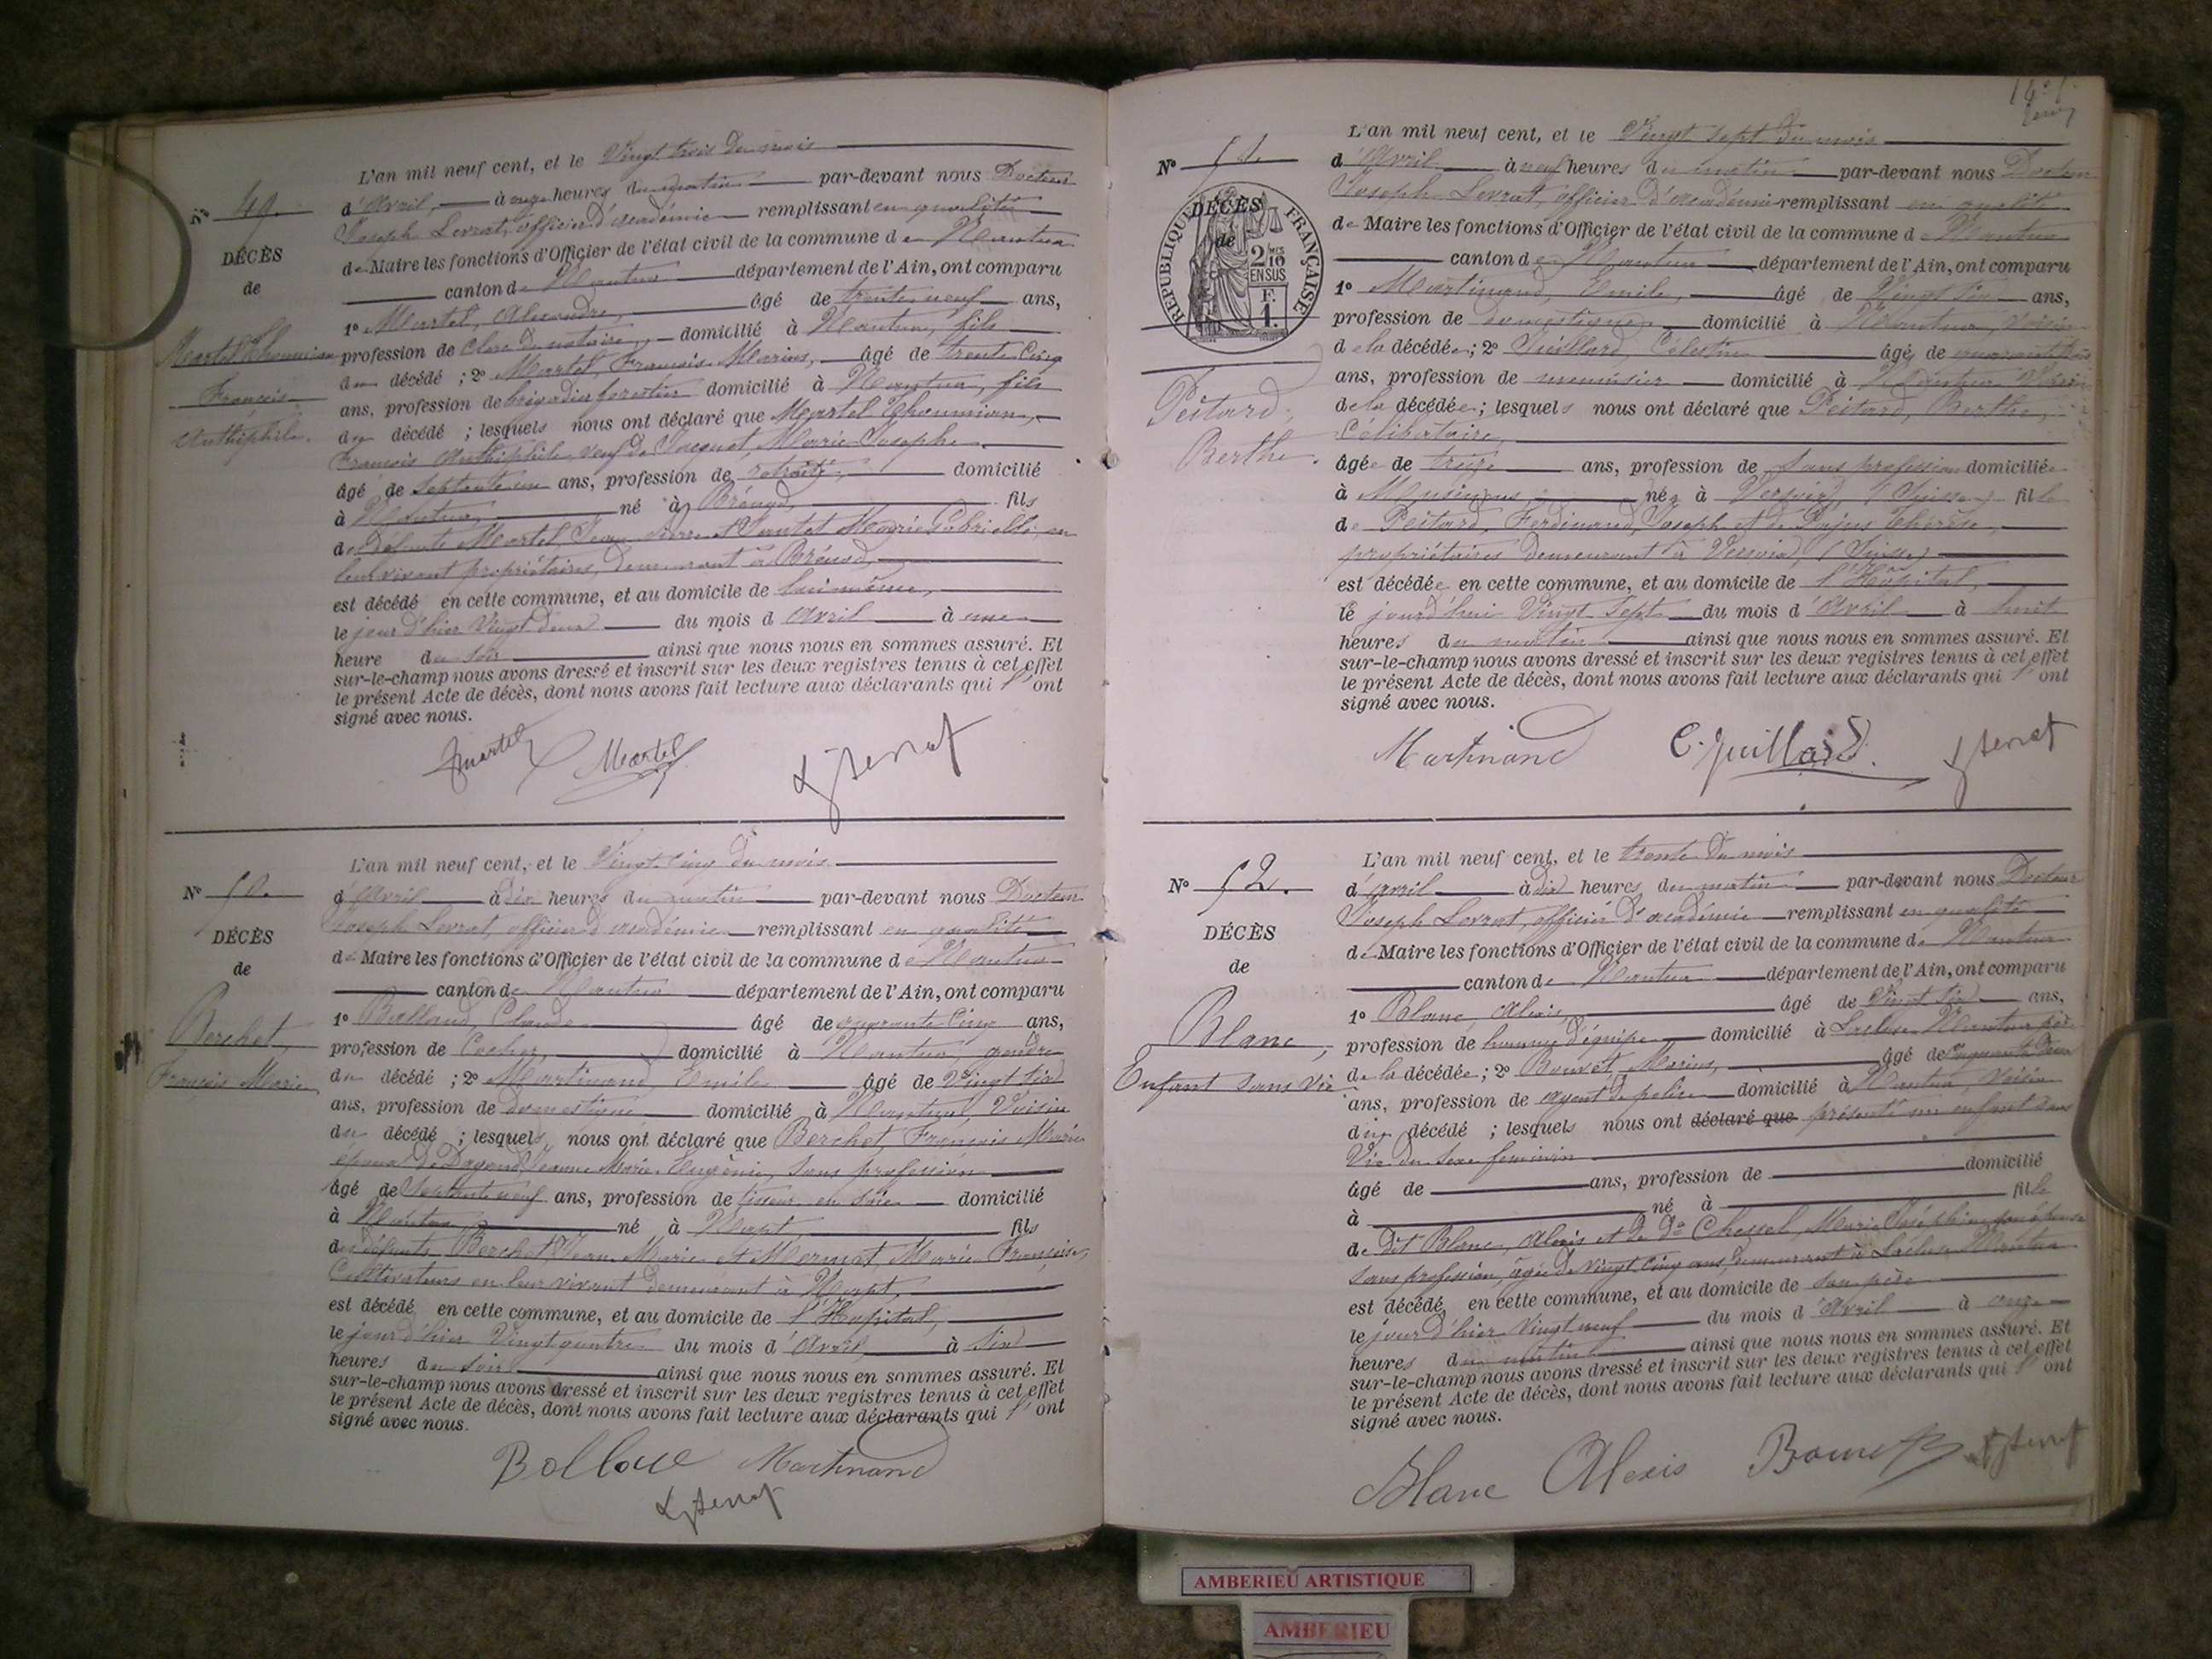 L'an mil neuf cent, et le Vingt trois du mois
N° 49.
d'Avril, à onze heures du matin par-devant nous Docteur
Joseph Levrat, officier d'académie remplissant en qualité
DÉCÈS
de Maire les fonctions d'Officier de l'état civil de la commune de Nantua
de
canton de Nantua département de l'Ain, ont comparu
1° Martel, Alexandre, âgé de trente neuf ans,
Martel
François
profession de clerc de notaire, domicilié à Nantua, fils
du décédé ; 2° Martel, François Marius, âgé de trente cinq
ans, profession de brigadier forestier domicilié à Nantua, fils
du décédé ; lesquels nous ont déclaré que Martel
François veuf de Marie Josephe
âgé de septante un ans, profession de retraité, domicilié
à Nantua, né à Brénod, fils
de défunts Martel, Jean Pierre et Marie Gabrielle, en
leur vivant propriétaires, demeurant à Brénod,
est décédé en cette commune, et au domicile de lui même,
le jour d'hier Vingt deux du mois d'avril à une
heure du soir ainsi que nous nous en sommes assuré. Et
sur-le-champ nous avons dressé et inscrit sur les deux registres tenus à cet effet
le présent Acte de décès, dont nous avons fait lecture aux déclarants qui l'ont
signé avec nous.
Martel Martel
L'an mil neuf cent, et le Vingt cinq du mois
N° 50.
d'Avril à dix heures du matin par-devant nous Docteur
Joseph Levrat, officier d'académie remplissant en qualité
DÉCÈS
de Maire les fonctions d'Officier de l'état civil de la commune de Nantua
de
canton de Nantua département de l'Ain, ont comparu
1° Balland, Claude âgé de quarante cinq ans,
Berchet,
profession de Cocher, domicilié à Nantua, gendre
François Marie
du décédé ; 2° Martinand, Emile âgé de Vingt six
ans, profession de domestique domicilié à Nantua, Voisin
du décédé ; lesquels nous ont déclaré que Berchet, François Marie
époux de Jeanne Marie Eugénie, sans profession
âgé de Septante neuf ans, profession de tisseur en soie domicilié
à Nantua, né à Napt, fils
de défunts Berchet, Jean Marie et Mermet, Marie Françoise,
Cultivateurs en leur vivant demeurant à Napt,
est décédé en cette commune, et au domicile de l'Hôpital,
le jour d'hier Vingt quatre du mois d'Avril à six
heures du soir ainsi que nous nous en sommes assuré. Et
sur-le-champ nous avons dressé et inscrit sur les deux registres tenus à cet effet
le présent Acte de décès, dont nous avons fait lecture aux déclarants qui l'ont
signé avec nous.
Martinand
L'an mil neuf cent, et le Vingt sept du mois
N° 51.
d'Avril à neuf heures du matin par-devant nous Docteur
Joseph Levrat, officier d'académie remplissant en qualité
RÉPUBLIQUE FRANÇAISE
DÉCÈS
de
2 MES 10
EN SUS
F. 1.
de Maire les fonctions d'Officier de l'état civil de la commune de Nantua
canton de Nantua département de l'Ain, ont comparu
1° Martinand, Emile, âgé de Vingt six ans,
profession de domestique domicilié à Nantua, voisin
de la décédée; 2° Juillard, Célestin âgé de quarante trois
ans, profession de menuisier domicilié à Nantua Voisin
Peitard,
Berthe.
de la décédée; lesquels nous ont déclaré que Peitard, Berthe,
Célibataire,
âgée de treize ans, profession de sans profession domiciliée
à née à Versoix, (Suisse) fille
de Peitard, Ferdinand, Joseph et de Thérèse,
propriétaires demeurant à Versoix, (Suisse)
est décédée en cette commune, et au domicile de l'Hôpital,
le jourd'hui Vingt sept du mois d'Avril à huit
heures du matin ainsi que nous nous en sommes assuré. Et
sur-le-champ nous avons dressé et inscrit sur les deux registres tenus à cet effet
le présent Acte de décès, dont nous avons fait lecture aux déclarants qui l'ont
signé avec nous.
Martinand C. Juillard
L'an mil neuf cent, et le trente du mois
N° 52.
d'avril à dix heures du matin par-devant nous Docteur
Joseph Levrat, officier d'académie remplissant en qualité
DÉCÈS
de Maire les fonctions d'Officier de l'état civil de la commune de Nantua
de
canton de Nantua département de l'Ain, ont comparu
1° Blanc, Alexis, âgé de Vingt six ans,
Blanc,
profession de homme d'équipe domicilié à Lacluse Nantua père
Enfant sans vie
de la décédée; 2° Bouvet, Marius, âgé de cinquante deux
ans, profession de agent de police domicilié à Nantua, voisin
du décédé ; lesquels nous ont déclaré que présenté un enfant sans
Vie du sexe féminin
âgé de ans, profession de domicilié
à né à fille
de dit Blanc, Alexis et de De Chessel, Marie Joséphine son épouse
sans profession, âgée de vingt cinq ans demeurant à Lacluse Nantua
est décédé en cette commune, et au domicile de son père
le jour d'hier vingt neuf du mois d'Avril à onze
heures du matin ainsi que nous nous en sommes assuré. Et
sur-le-champ nous avons dressé et inscrit sur les deux registres tenus à cet effet
le présent Acte de décès, dont nous avons fait lecture aux déclarants qui l'ont
signé avec nous.
Blanc Alexis Bouvet
AMBERIEU ARTISTIQUE
AMBERIEU